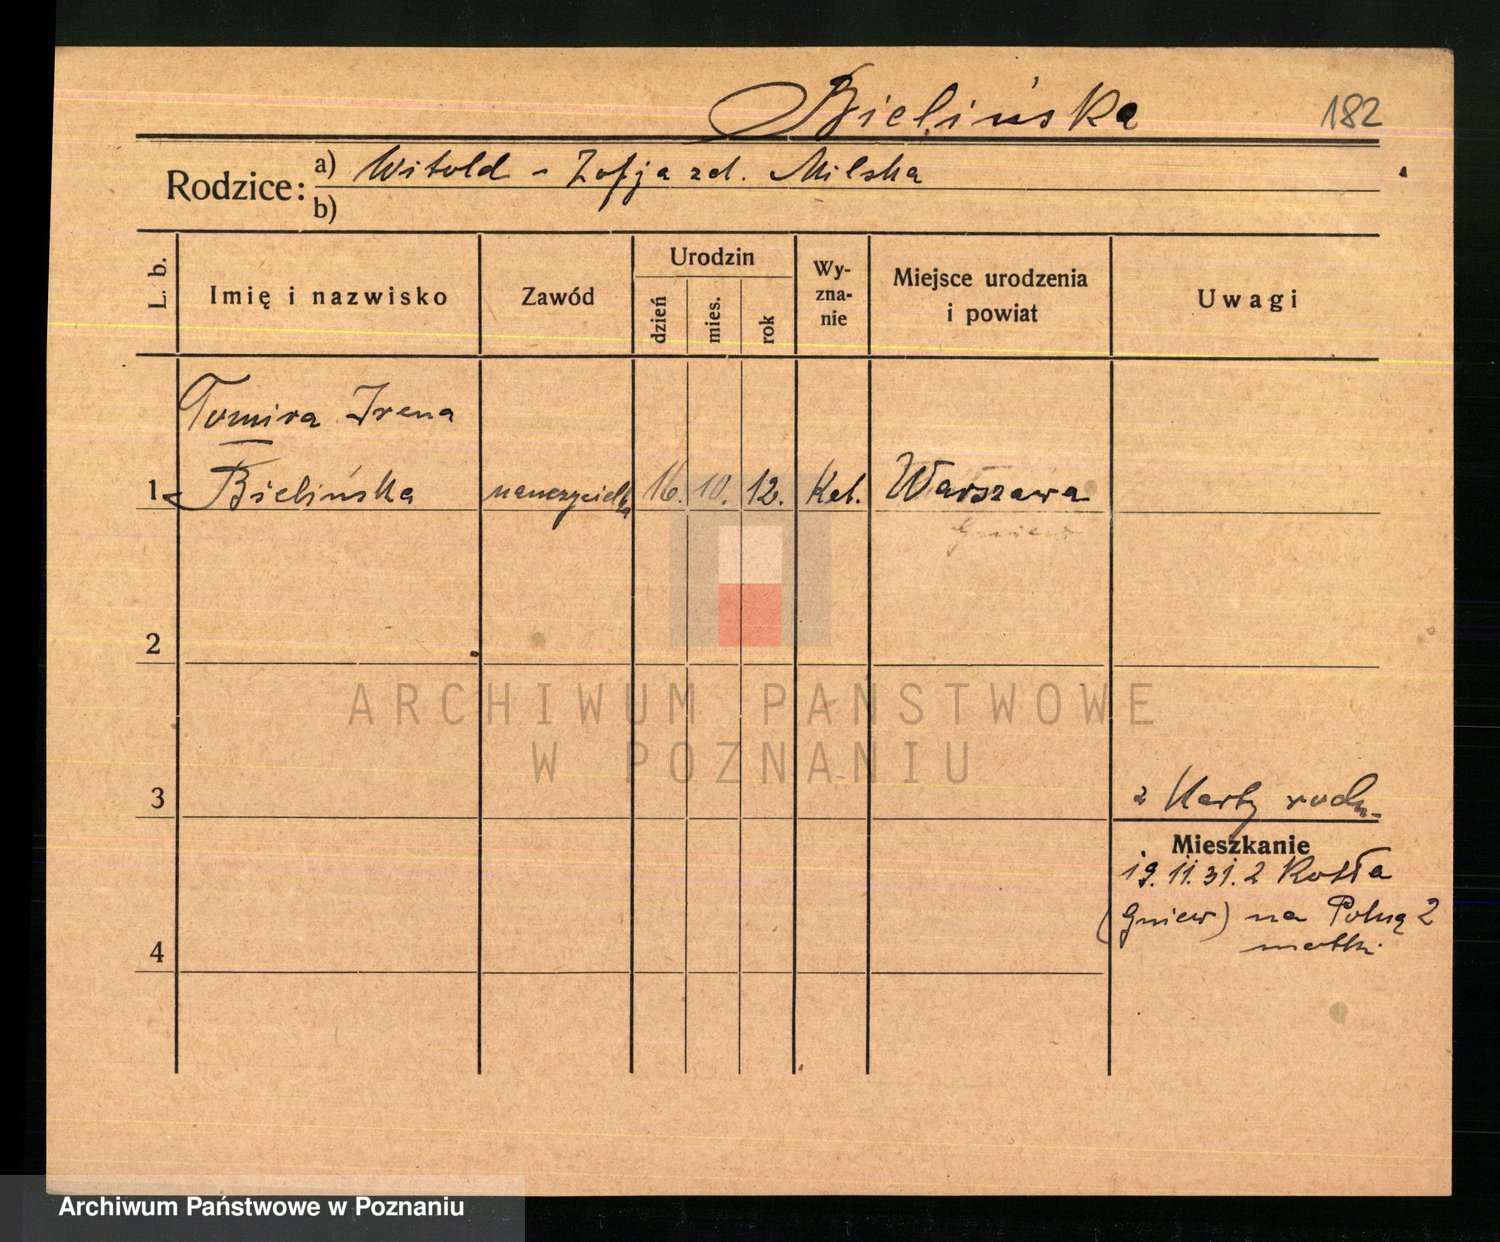 Bielińska
182
Rodzice:
a) Witold - Zofja zd. Milska
b)
L. b.
Imię i nazwisko
Zawód
Urodzin
dzień
mies.
rok
Wy-
zna-
nie
Miejsce urodzenia
i powiat
Uwagi
Tomira Irena
1 Bielińska nauczycielka 16. 10. 12. Kat. Warszawa
Gniew
2
3
z Karty rodz.
Mieszkanie
19.11.31. z
(Gniew) na Polną 2
matki
4
ARCHIWUM PAŃSTWOWE
W POZNANIU
Archiwum Państwowe w Poznaniu